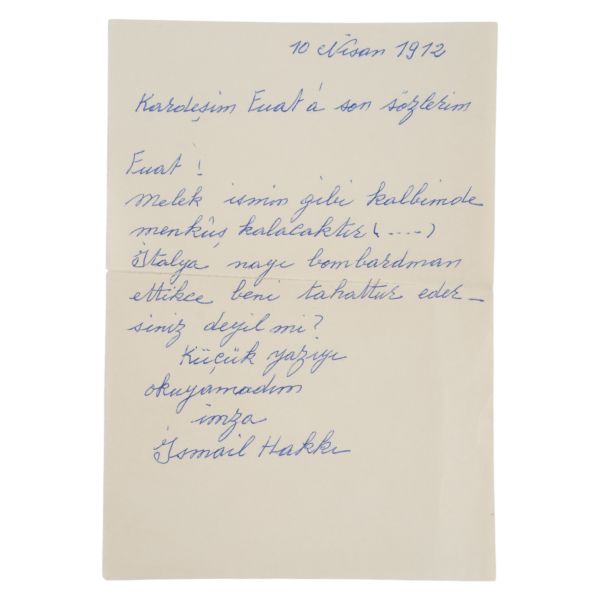 10 Nisan 1912
Kardeşim Fuat'á son sözlerim
Fuat!
Melek ismin gibi kalbimde
menkûş kalacaktır (....)
İtalya nayı bombardman
ettikce beni tahattur eder-
siniz deyil mi?
Küçük yazıyı
okuyamadım
imza
İsmail Hakkı